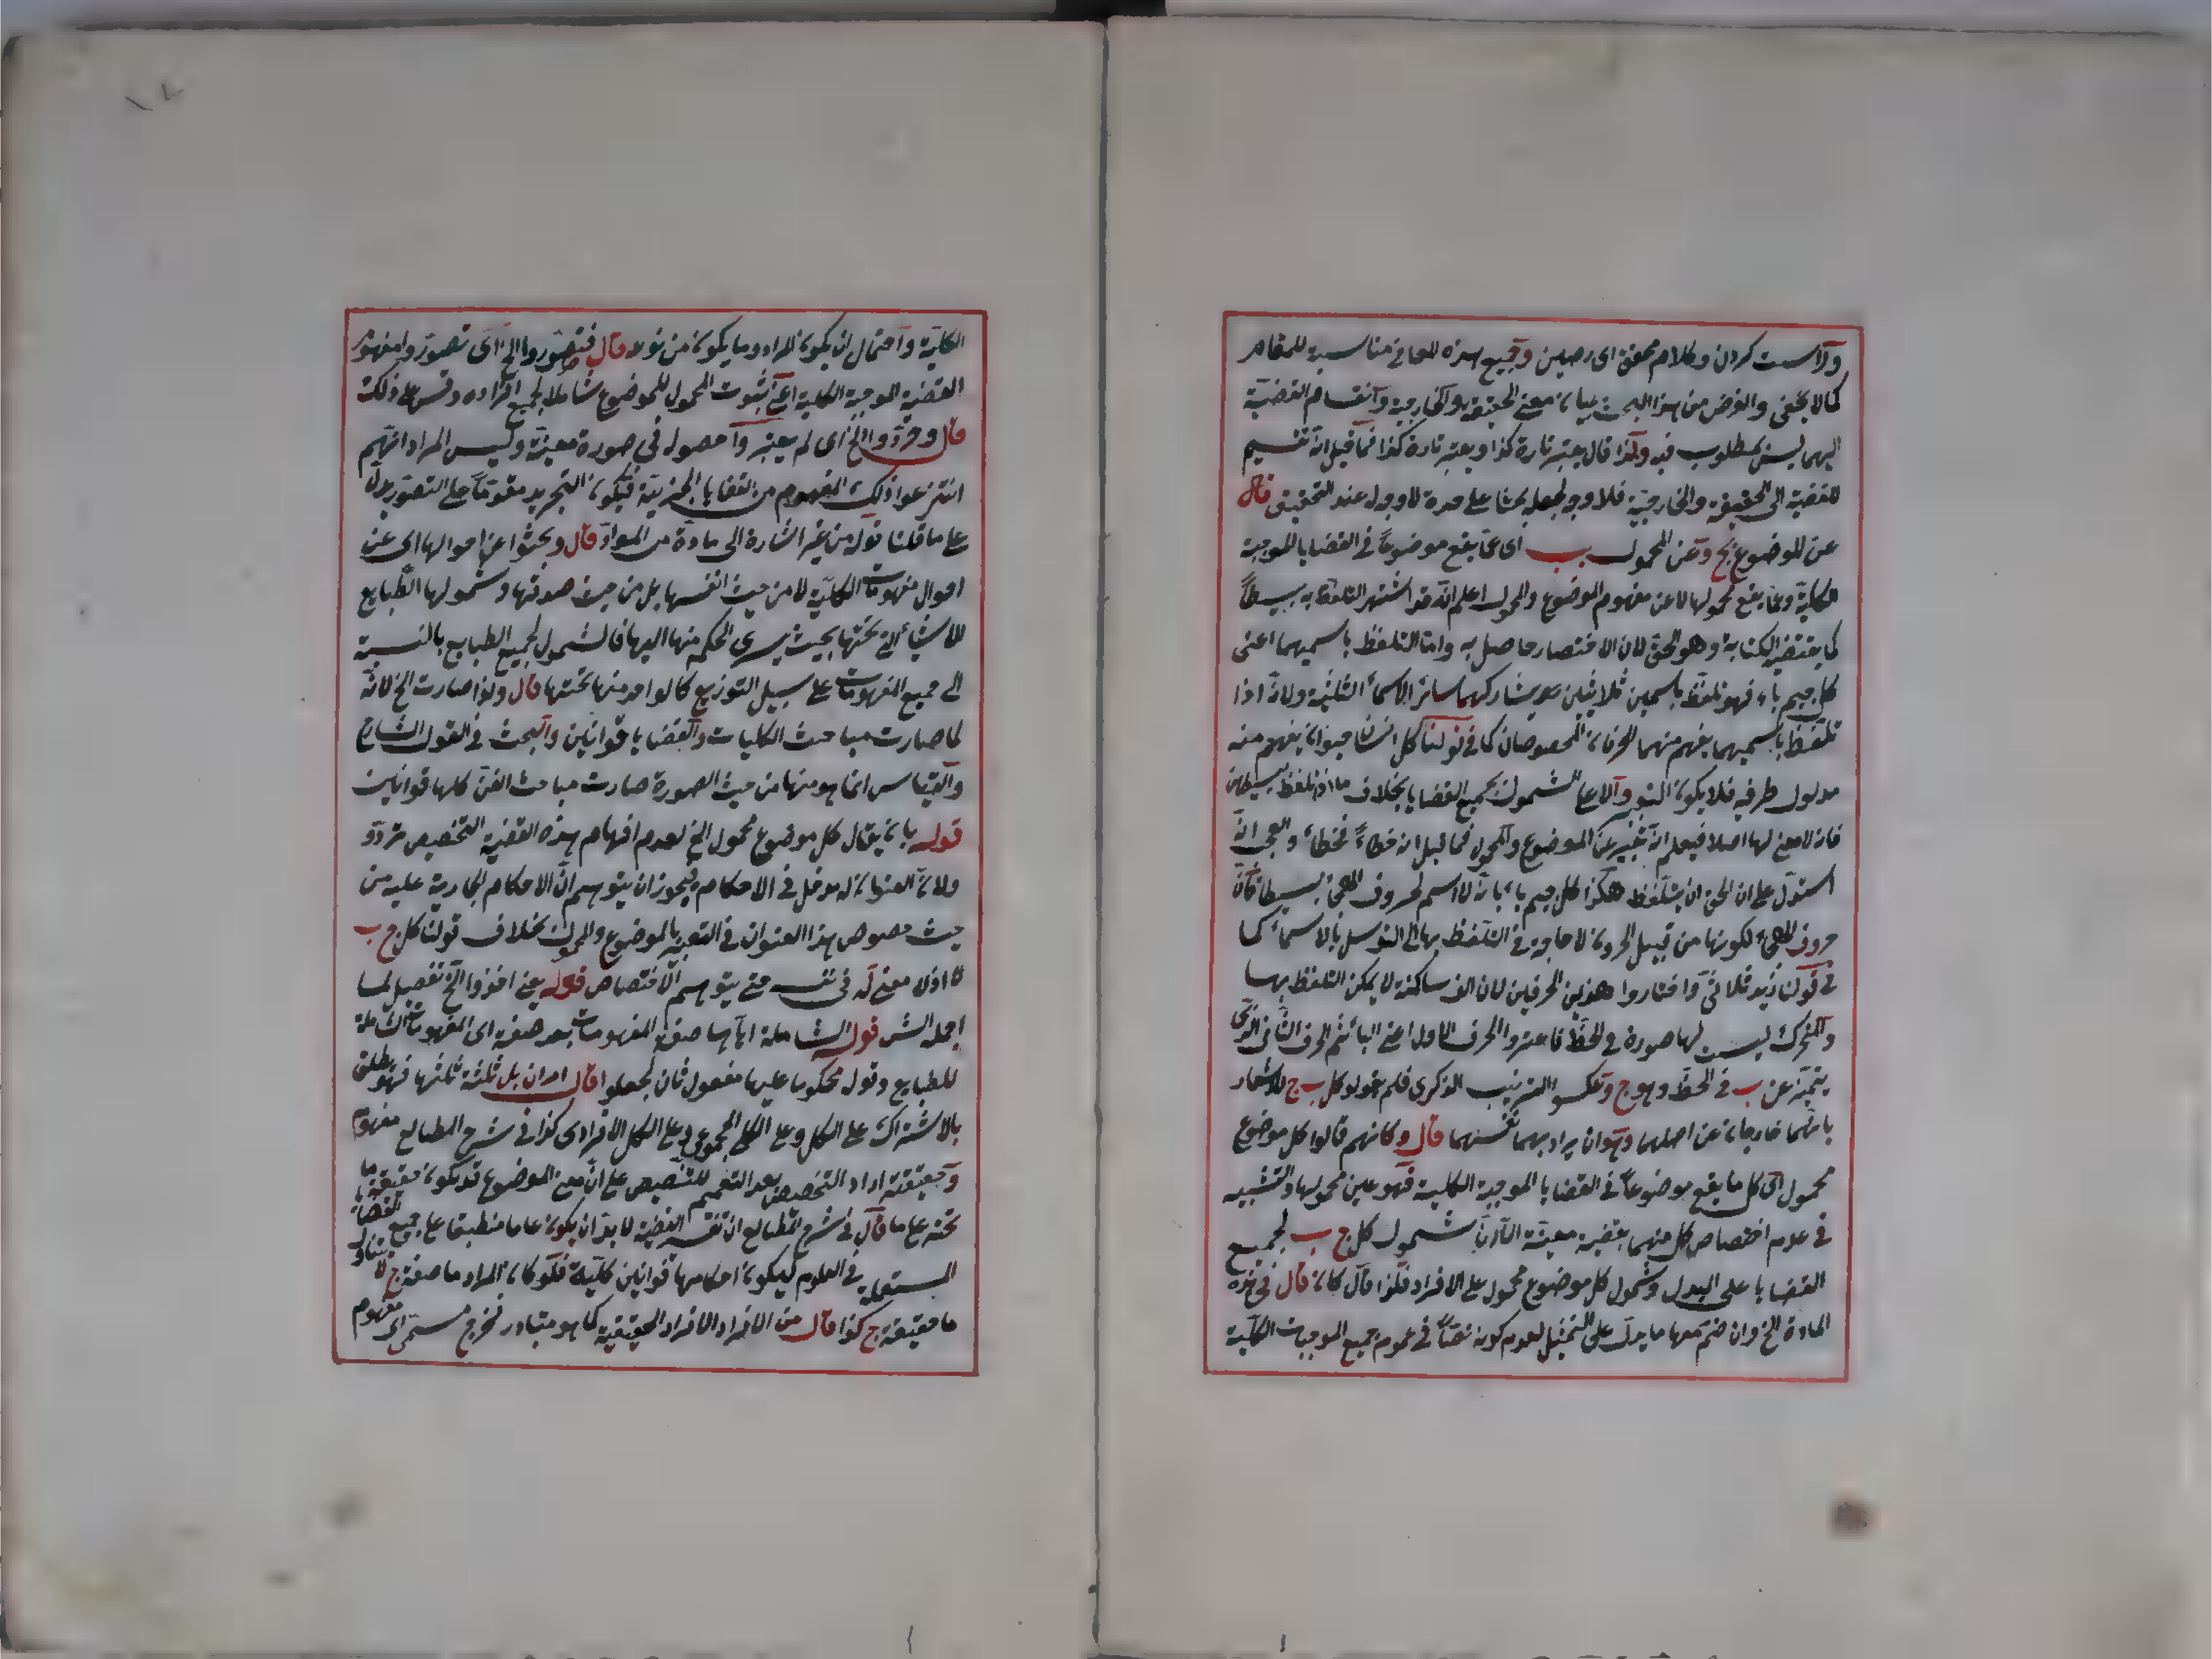 وراست كردن وكلام محقق اى رصين وجميع هذه المعانى مناسبة للمقام
كما لا يخفى والغرض من هذا البحث بيان معنى الحقيقة والخارجية وانقسام القضية
اليهما ليس بمطلوب فيه ولذا قال يعتبر تارة كذا ويعتبر تارة كذا فما قيل انه تقسيم
للقضية الى الحقيقية والخارجية فلا وجه لجعله بحثا على حدة لا وجه له عند التحقيق قال
عن الموضوع بج وعن المحمول بب اى عما يقع موضوعاً فى القضايا الموجبة
الكلية وعما يقع محمولها لا عن مفهوم الموضوع والمحمول اعلم انه قد اشتهر التلفظ به بسيطاً
كما يقتضيه الكتابة وهو الحق لان الاختصار حاصل به واما التلفظ باسميهما اعنى
كل جيم باء فهو تلفظ باسمين ثلاثيين يشاركهما سائر الاسماء الثلثية ولانه اذا
تلفظ باسميهما يفهم منهما الحرفان المخصوصان كما فى قولنا كل انسان حيوان يفهم منه
مدلول طرفيه فلا يكون التعبير دالا على الشمول بجميع القضايا بخلاف ما اذا تلفظ بسيطين
فانه لا معنى لها اصلا فيعلم انه تعبير عن الموضوع والمحمول فما قيل انه خطاء فخطاء والعجب انه
استدل على ان الحق ان يتلفظ هكذا كل جيم باء بانه لا اسم لحروف الهجاء بسيطا فان
حروف الهجاء لكونها من قبيل الحروف لا حاجة فى التلفظ بها الى التوسل بالاسماء كما
فى قولنا زيد ثلاثى واختاروا هذين الحرفين لان الف ساكنة لا يمكن التلفظ بها
والمتحرك ليست لها صورة فى الخط فاعتبروا الحرف الاول اعنى الباء ثم الحرف الثانى الذى
يتميز عن ب فى الخط وهو ج وعكسوا الترتيب الذكرى فلم يقولوا كل ب ج للاشعار
بانهما خارجان عن اصلهما وهو ان يراد بهما نفسهما قال وكانهم قالوا كل موضوع
محمول اى كل ما يقع موضوعاً فى القضايا الموجبة الكلية فهو عين محمولها والتشبيه
فى عدم اختصاص كل منهما بقضية معينة الا ان شمول كل ج ب لجميع
القضايا على البدل وشمول كل موضوع محمول على الافراد فلذا قال كان قال فى هذه
المادة الخ وان ضم معها ما يدل على التمثيل لعدم كونه نصاً فى عموم جميع الموجبات الكلية
الكلية واحتمال ان يكون المراد وما يكون من نوعه قال فتصوروا الخ اى تصوروا مفهوم
القضية الموجبة الكلية اعنى ثبوت المحمول للموضوع شاملا لجميع افراده وقس على ذلك
قال وجردوا الخ اى لم يعتبروا حصوله فى صورة معينة وليس المراد انهم
انتزعوا ذلك المفهوم من القضايا الجزئية فيكون التجريد مقدماً على التصور يدل
على ما قلنا قوله من غير اشارة الى مادة من المواد قال وبحثوا عن احوالها اى عن
احوال مفهومات الكلية لا من حيث انفسها بل من حيث صدقها وشمولها الطبايع
الاشياء التى تحتها بحيث يسرى الحكم منها اليها فالشمول لجميع الطبايع بالنسبة
الى جميع المفهومات على سبيل التوزيع كالواحد منها تحتها قال ولذا صارت الخ لانه
لما صارت مباحث الكليات والقضايا قوانين والبحث فى القول الشارح
والقياس انما هو منها من حيث الصورة صارت مباحث الفن كلها قوانين
قوله بان يقال كل موضوع محمول الخ لعدم افهام هذه القضية التخصيص تردد
ولان العنوان له مدخل فى الاحكام فيجوز ان يتوهم ان الاحكام الجارية عليه من
حيث خصوص هذا العنوان فى التعبير بالموضوع والمحمول بخلاف قولنا كل ج ب
اذ لا معنى له فى نفسه حتى يتوهم الاختصاص قوله يعنى اخذوا الخ تفصيل لما
اجمله الشر قوله الشاملة اياها صفة المفهومات بعد صفة اى المفهومات الشاملة
للطبايع وقوله محكوما عليها مفعول ثان لجعلوا قال امران بل ثلثة ثلثها فهو يطلق
بالاشتراك على الكل وعلى الكلى المجموعى وعلى الكل الافرادى كذا فى شرح المطالع مفهوم
وحقيقته اراد التخصيص بعد التعميم للتنصيص على ان معنى الموضوع قد يكون حقيقة ما
تحته على ما قال فى شرح المطالع ان تفسير القضية لا بد ان يكون عاما منطبقا على جميع القضايا
المستعملة فى العلوم ليكون احكامها قوانين كلية فلو كان المراد ما صفته ج لا يتناول
ما حقيقته ج كذا قال من الافراد الافراد الحقيقية كما هو متبادر فخرج مسمى اى مفهوم